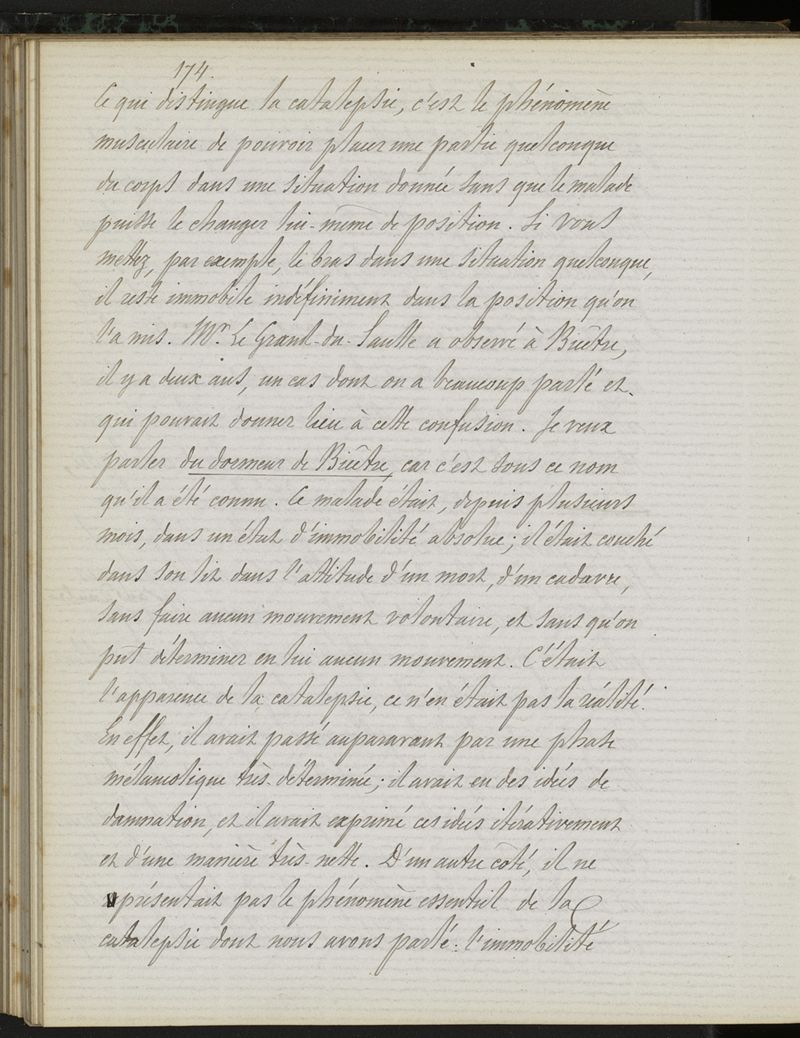 174.
Ce qui distingue la catalepsie, c'est le phénomène
musculaire de pouvoir placer une partie quelconque
du corps dans une situation donnée sans que le malade
puisse le changer lui-même de position. Si vous
mettez, par exemple, le bras dans une situation quelconque,
il reste immobile indéfiniment dans la position qu'on
l'a mis. Mr. Le Grand-du-Saulle a observé à Bicêtre,
il y a deux ans, un cas dont on a beaucoup parlé et
qui pouvait donner lieu à cette confusion. Je veux
parler du dormeur de Bicêtre, car c'est sous ce nom
qu'il a été connu. Ce malade était, depuis plusieurs
mois, dans un état d'immobilité absolue; il était couché
dans son lit dans l'attitude d'un mort, d'un cadavre,
sans faire aucun mouvement volontaire, et sans qu'on
pût déterminer en lui aucun mouvement. C'était
l'apparence de la catalepsie, ce n'en était pas la réalité.
En effet, il avait passé auparavant par une phase
mélancolique très-déterminée; il avait eu des idées de
damnation, et il avait exprimé ces idées itérativement
et d'une manière très-nette. D'un autre côté, il ne
présentait pas le phénomène essentiel de la
catalepsie dont nous avons parlé: l'immobilité